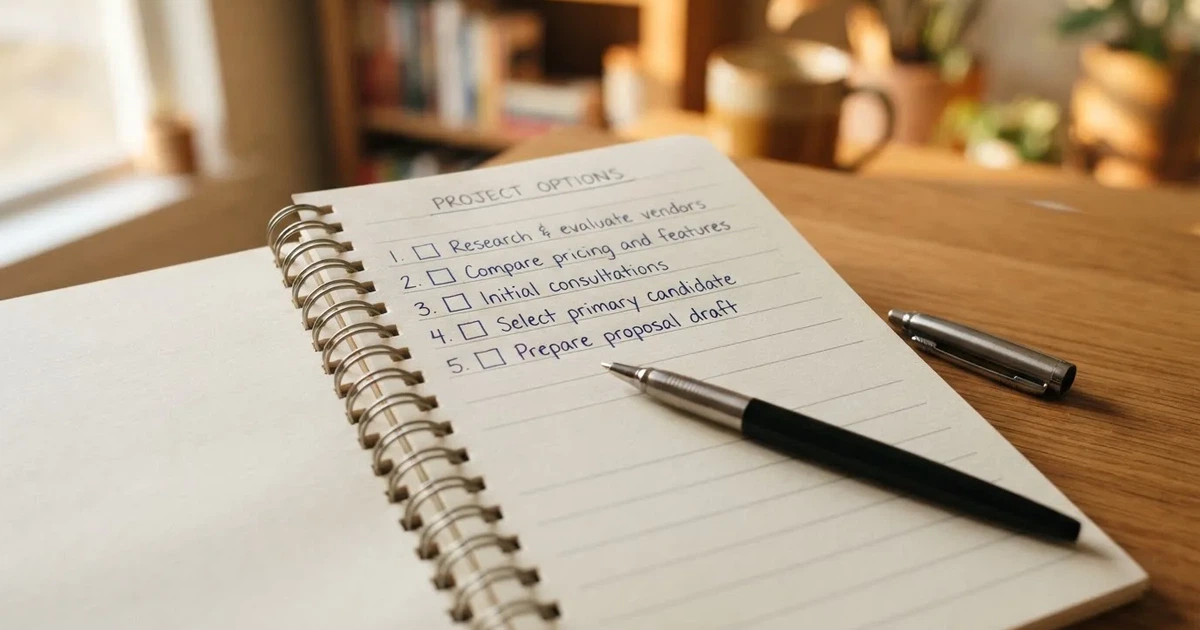 PROJECT OPTIONS
1. ☐ Research & evaluate vendors
2. ☐ Compare pricing and features
3. ☐ Initial consultations
4. ☐ Select primary candidate
5. ☐ Prepare proposal draft